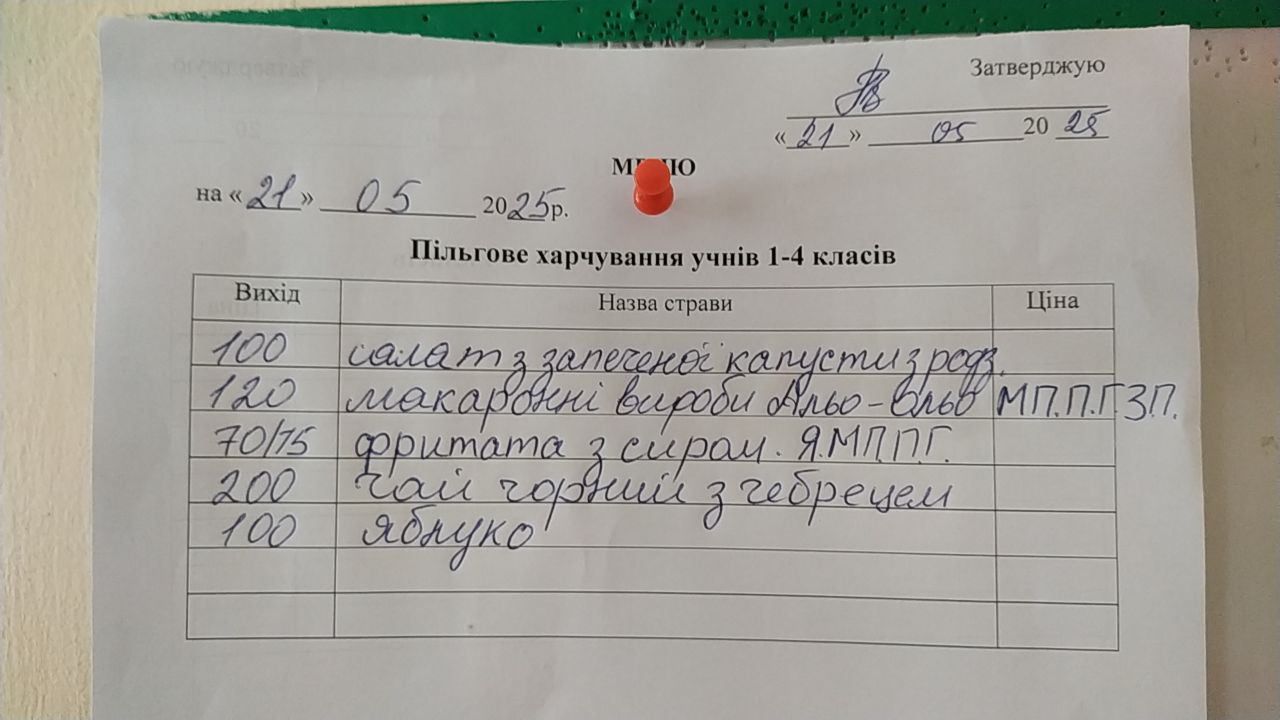 Затверджую
« 21 » 05 20 25
МЕНЮ
на « 21 » 05 2025р.
Пільгове харчування учнів 1-4 класів
Вихід Назва страви Ціна
100 салат з запеченої капусти з родз.
120 макаронні вироби Альо-ольо МП.П.Г.ЗП.
70/75 фритата з сиром. Я.МП.П.Г.
200 чай чорний з чебрецем
100 яблуко